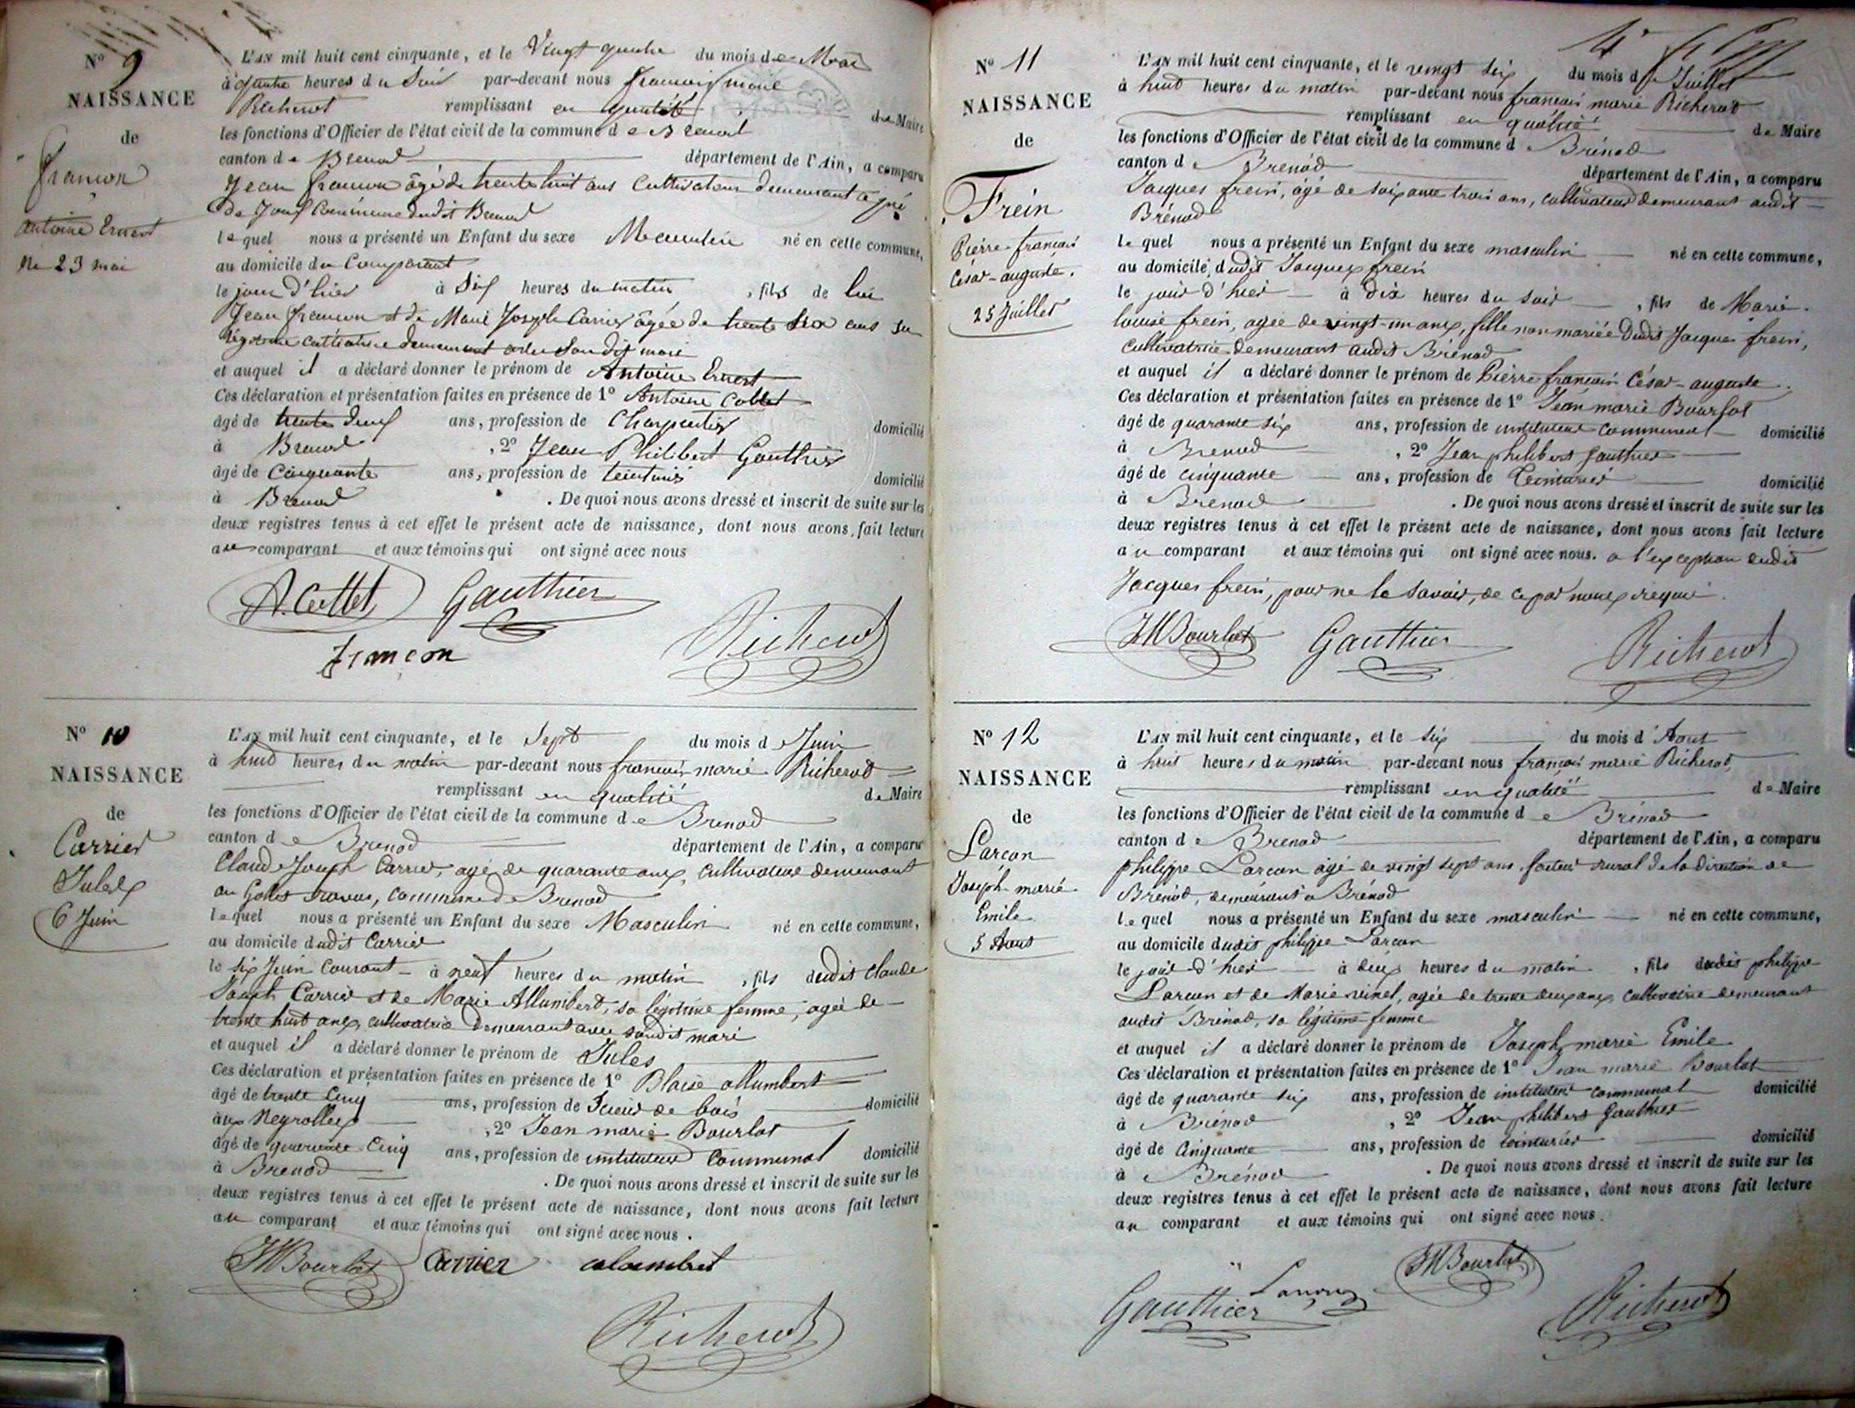 N° 9
NAISSANCE
de
françon
antoine Ernest
Ne 23 mai
L'AN mil huit cent cinquante, et le Vingt quatre du mois de Mai
à quatre heures du Soir par-devant nous françois marie
Richerot remplissant en qualité de Maire
les fonctions d'Officier de l'état civil de la commune de Brenod
canton de Brenod département de l'Ain, a comparu
Jean françon âgé de trente huit ans Cultivateur demeurant a pré
de Joux Commune dudit Brenod
lequel nous a présenté un Enfant du sexe Masculin né en cette commune,
au domicile du Comparant
le jour d'hier à Six heures du matin, fils de lui
Jean françon et de Marie Josephe Carrier âgée de trente Six ans sa
légitime cultivatrice demeurant avec Son dit mari
et auquel il a déclaré donner le prénom de Antoine Ernest
Ces déclaration et présentation faites en présence de 1° Antoine Collet
âgé de trente deux ans, profession de Charpentier domicilié
à Brenod, 2° Jean Philibert Gauthier
âgé de Cinquante ans, profession de teinturier domicilié
à Brenod. De quoi nous avons dressé et inscrit de suite sur les
deux registres tenus à cet effet le présent acte de naissance, dont nous avons fait lecture
au comparant et aux témoins qui ont signé avec nous
A. Collet Gauthier
françon Richerot
N° 10
NAISSANCE
de
Carrier
Jules
6 Juin
L'AN mil huit cent cinquante, et le Sept du mois de Juin
à huit heures du matin par-devant nous françois marie Richerot
remplissant en qualité de Maire
les fonctions d'Officier de l'état civil de la commune de Brenod
canton de Brenod département de l'Ain, a comparu
Claude Joseph Carrier, agé de quarante ans, Cultivateur demeurant
au commune de Brenod
lequel nous a présenté un Enfant du sexe Masculin né en cette commune,
au domicile dudit Carrier
le six Juin Courant à neuf heures du matin, fils dudit Claude
Joseph Carrier et de Marie Allumbert, sa légitime femme, agée de
trente huit ans, cultivatrice demeurant avec sondit mari
et auquel il a déclaré donner le prénom de Jules
Ces déclaration et présentation faites en présence de 1° Blaise allumbert
âgé de trente Cinq ans, profession de Scieur de bois domicilié
aux Neyrolles, 2° Jean marie Bourlot
âgé de quarante Cinq ans, profession de instituteur Communal domicilié
à Brenod. De quoi nous avons dressé et inscrit de suite sur les
deux registres tenus à cet effet le présent acte de naissance, dont nous avons fait lecture
au comparant et aux témoins qui ont signé avec nous.
JMBourlot Carrier alombert
Richerot
N° 11
NAISSANCE
de
Frein
Pierre françois
César-auguste.
25 Juillet
L'AN mil huit cent cinquante, et le vingt six du mois de Juillet
à huit heures du matin par-devant nous françois marie Richerot
remplissant en qualité de Maire
les fonctions d'Officier de l'état civil de la commune d Brénod
canton d Brenod département de l'Ain, a comparu
Jacques frein, âgé de soixante trois ans, cultivateur demeurant audit
Brénod
lequel nous a présenté un Enfant du sexe masculin né en cette commune,
au domicile dudit Jacques frein
le jour d'hier à dix heures du soir, fils de Marie
louise frein, agée de vingt-un ans, fille non mariée dudit Jacques frein,
Cultivatrice demeurant audit Brénod
et auquel il a déclaré donner le prénom de Pierre françois César-auguste.
Ces déclaration et présentation faites en présence de 1° Jean marie Bourlot
âgé de quarante six ans, profession de instituteur communal domicilié
à Brenod, 2° Jean philibert gauthier
âgé de cinquante ans, profession de Teinturier domicilié
à Brenod. De quoi nous avons dressé et inscrit de suite sur les
deux registres tenus à cet effet le présent acte de naissance, dont nous avons fait lecture
au comparant et aux témoins qui ont signé avec nous. a l'exception dudit
Jacques frein, pour ne le savoir, de ce par nous requis.
JMBourlot Gauthier Richerot
N° 12
NAISSANCE
de
Larcon
Joseph marie
Emile
5 Aout
L'AN mil huit cent cinquante, et le six du mois d'Aout
à huit heures du matin par-devant nous françois marie Richerot,
remplissant en qualité de Maire
les fonctions d'Officier de l'état civil de la commune de Brénod
canton de Brenod département de l'Ain, a comparu
philippe Larcon âgé de vingt sept ans, facteur rural de la direction de
Brénod, demeurant à Brénod
lequel nous a présenté un Enfant du sexe masculin né en cette commune,
au domicile dudit philippe Larcon
le jour d'hier à deux heures du matin, fils dudit philippe
Larcon et de Marie vinet, agée de trente deux ans, cultivatrice demeurant
audit Brénod, sa légitime femme
et auquel il a déclaré donner le prénom de Joseph marie Emile
Ces déclaration et présentation faites en présence de 1° Jean marie Bourlot
âgé de quarante six ans, profession de instituteur communal domicilié
à Brénod, 2° Jean philibert Gauthier
âgé de Cinquante ans, profession de teinturier domicilié
à Brénod. De quoi nous avons dressé et inscrit de suite sur les
deux registres tenus à cet effet le présent acte de naissance, dont nous avons fait lecture
au comparant et aux témoins qui ont signé avec nous.
Gauthier Larcon JMBourlot Richerot